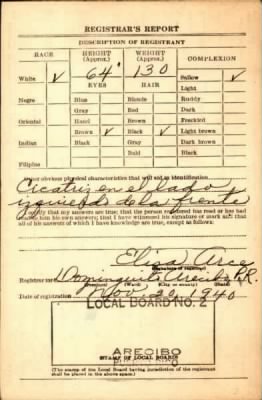 REGISTRAR'S REPORT
DESCRIPTION OF REGISTRANT
RACE HEIGHT (Approx.) WEIGHT (Approx.) COMPLEXION
White ✓ 64" 130 Sallow ✓
EYES HAIR Light
Negro Blue Blonde Ruddy
Gray Red Dark
Oriental Hazel Brown Freckled
Brown ✓ Black ✓ Light brown
Indian Black Gray Dark brown
Bald Black
Filipino
Other obvious physical characteristics that will aid in identification
Cicatriz en el lado
izquierdo de la frente
I certify that my answers are true; that the person registered has read or has had
read to him his own answers; that I have witnessed his signature or mark and that
all of his answers of which I have knowledge are true, except as follows:
Elisa Arce
(Signature of registrar)
Registrar for Dominguito Arecibo P.R.
(Precinct) (Ward) (City or county) (State)
Date of registration Nov. 20 1940
LOCAL BOARD NO. 2
ARECIBO
STAMP OF LOCAL BOARD
(The stamp of the Local Board having jurisdiction of the registrant
shall be placed in the above space.)